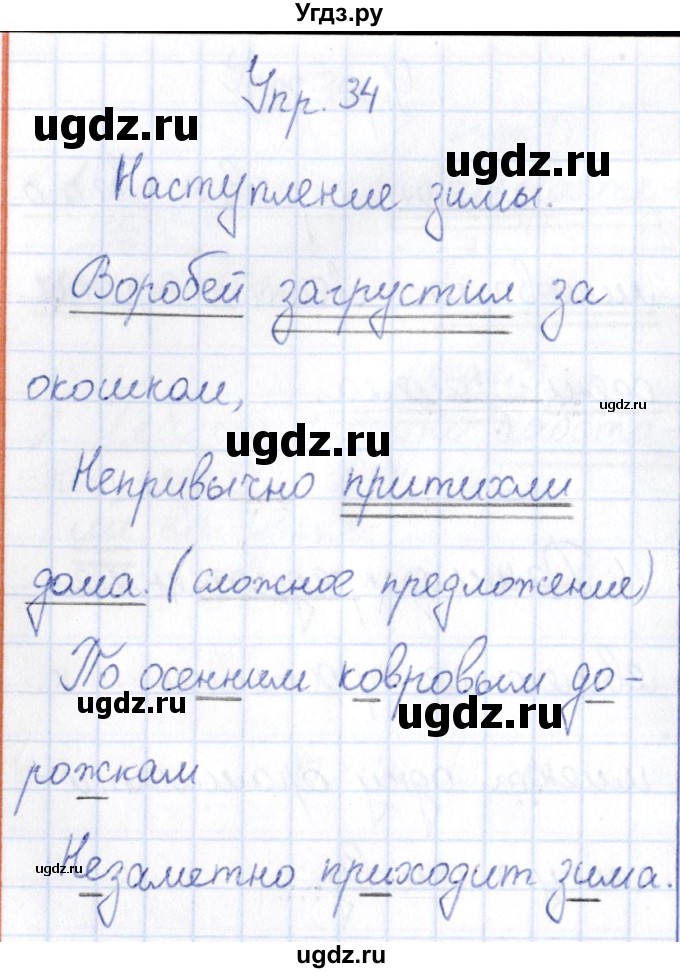 Угдз.ру
Упр. 34
ugdz.ru
ugdz.ru
Наступление зимы.
Воробей загрустил за
ugdz.ru
окошком,
ugdz.ru
ugdz.ru
Непривычно притихли
дома. (сложное предложение)
По осенним ковровым до-
ugdz.ru
рожкам
ugdz.ru
Незаметно приходит зима.
ugdz.ru
ugdz.ru